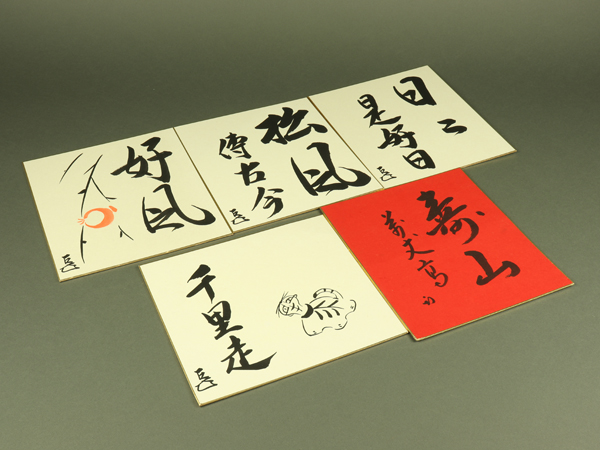 好風
松風
傳古今
日〻
是好日
千里走
壽山
萬丈高